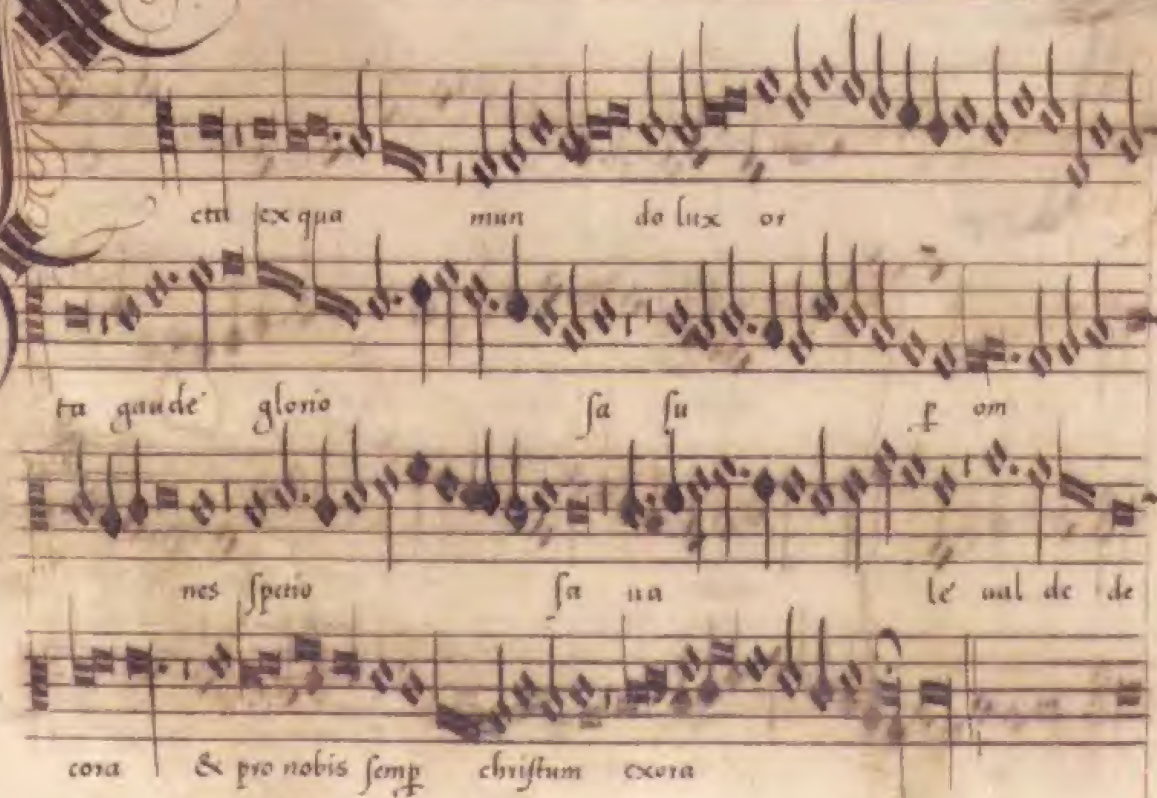 cta ex qua mun do lux or
ta gaude glorio ſa ſu ꝑ om
nes ſpetio ſa ua le ual de de
cora & pro nobis ſemꝑ chriſtum exora